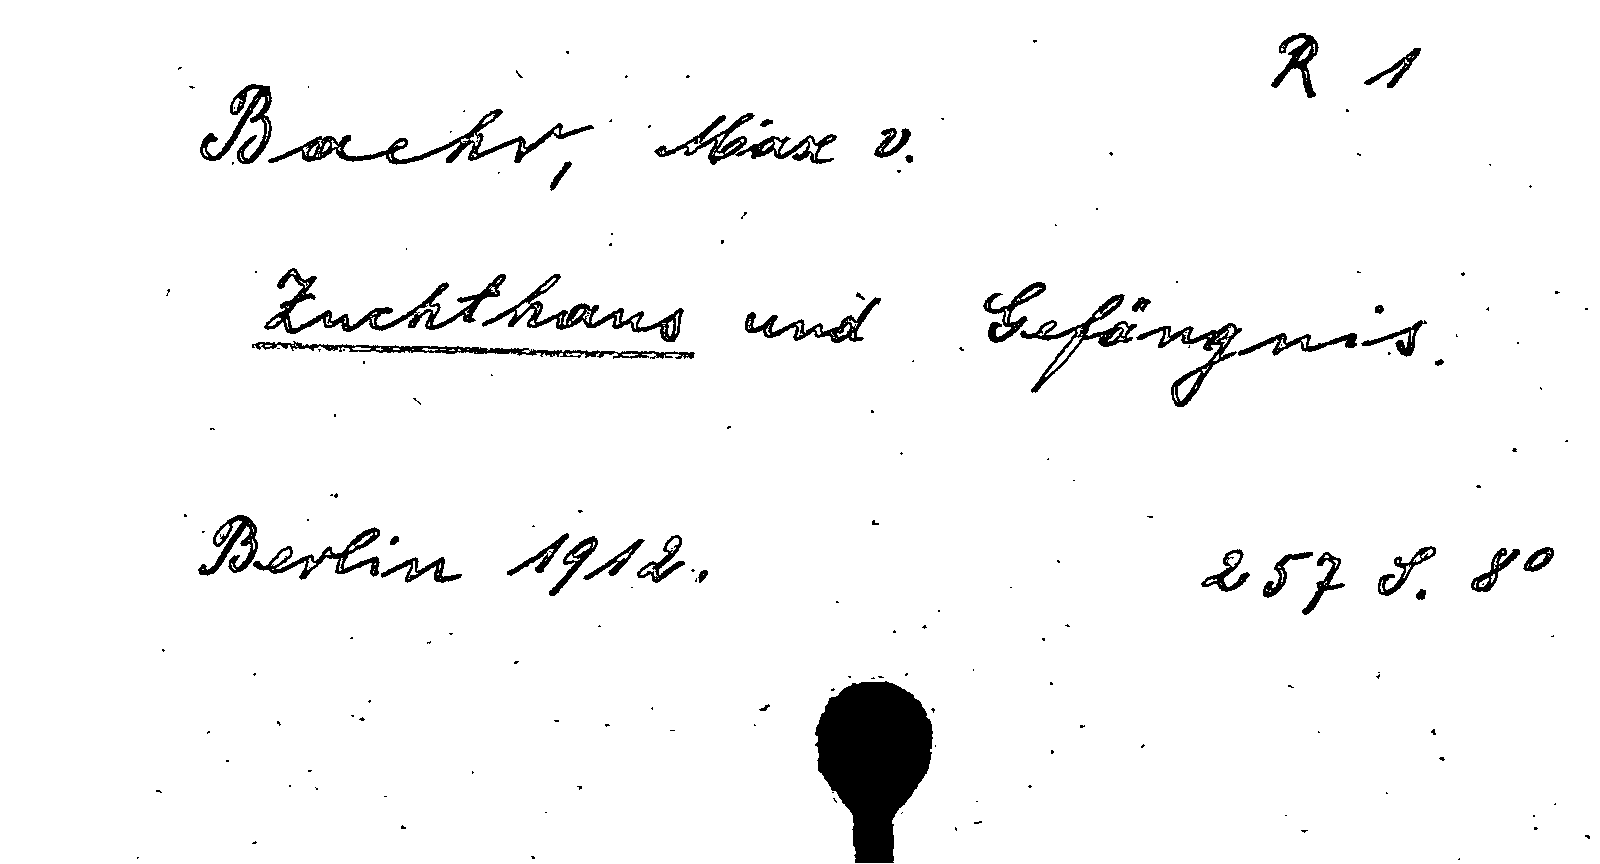 R 1
Baehr, Max v.
Zuchthaus und Gefängnis.
Berlin 1912. 257 S. 8°